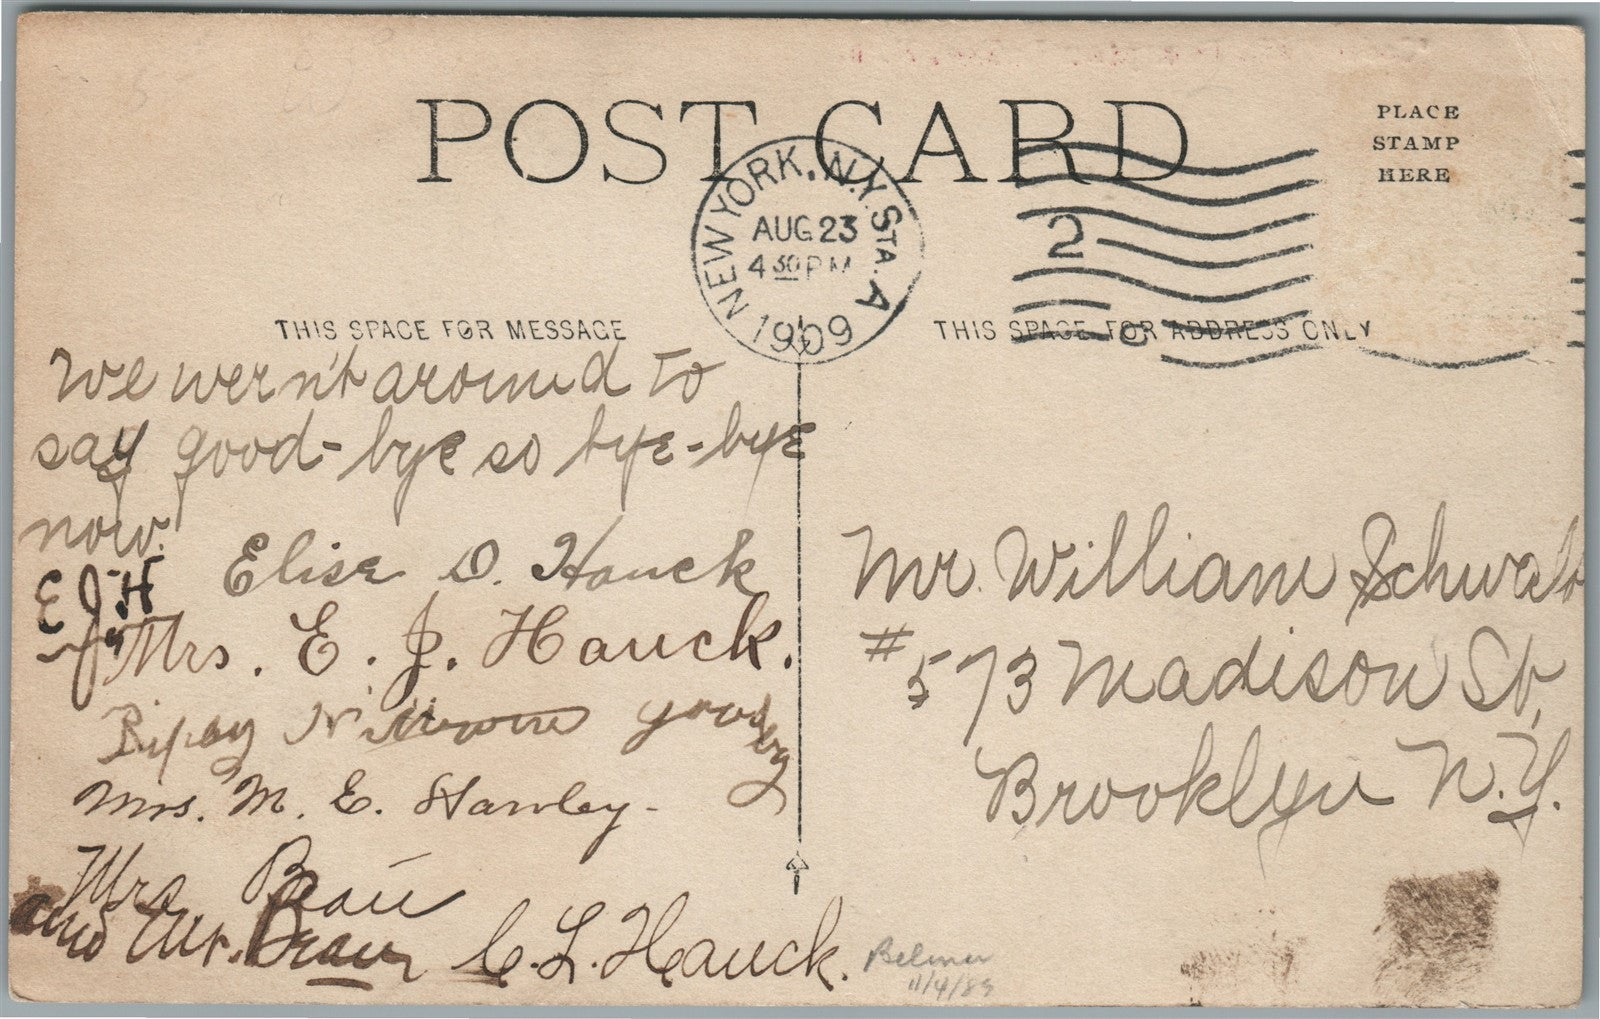 POST CARD
PLACE
STAMP
HERE
NEW YORK, N.Y. STA. A
AUG 23
4 30 PM
1909
2
THIS SPACE FOR MESSAGE
THIS SPACE FOR ADDRESS ONLY
We wern't around to
say good-bye so bye-bye
now.
E J H
Elise D. Hauck
Mrs. E. J. Hauck.
good by
Mrs. M. E. Hawley-
Mrs Beau
and Mr. Beau C. L. Hauck.
Mr. William Schwab
#573 Madison St,
Brooklyn N.Y.
Belmar
11/4/89